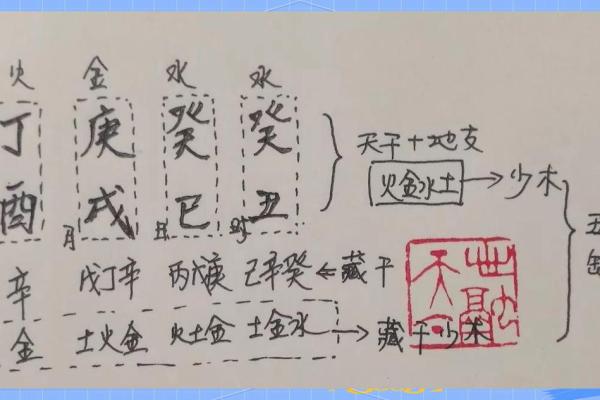 火 金 水 水
丁 庚 癸 癸
酉 戌 巳 丑
月 日 时
天干+地支
火金水土 → 少木
辛 戊丁辛 丙戊庚 己辛癸 ⇐ 藏干
金 土火金 火土金 土金水 → 藏干少木
五